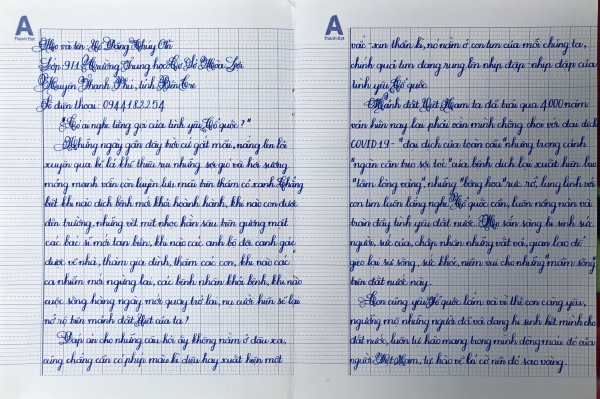 A
Thành Đạt
Họ và tên: Hồ Đặng Thúy
Lớp: 911 Trường Trung học Cơ Sở Hòa Lợi
Huyện Thạnh Phú, tỉnh Bến Tre
Số điện thoại: 0944182254
"Có ai nghe tiếng gọi của tình yêu Tổ quốc?"
Những ngày gần đây trời cứ gắt mãi, nắng len lỏi
xuyên qua kẽ lá khẽ thiêu rụi những sợi gió và hơi sương
mỏng manh vẫn còn luyến lưu mãi trên thảm cỏ xanh. Chẳng
biết khi nào dịch bệnh mới khải hoành hành, khi nào con được
đến trường, những vết mệt nhọc hằn sâu trên gương mặt
các bác sĩ mới tan biến, khi nào các anh bộ đội canh gác
được về nhà, thăm gia đình, thăm các con, khi nào các
ca nhiễm mới ngừng lại, các bệnh nhân khỏi bệnh, khi nào
cuộc sống hằng ngày mới quay trở lại, nụ cười hiền sẽ lại
nở rộ trên mảnh đất Việt của ta?
Đáp án cho những câu hỏi ấy không nằm ở đâu xa,
cũng chẳng cần có phép màu kì diệu hay xuất hiện một
A
Thành Đạt
vấc-xin thần kì, nó nằm ở con tim của mỗi chúng ta,
chính quả tim đang rung lên nhịp đập - nhịp đập của
tình yêu Tổ quốc.
Mảnh đất Việt Nam ta đã trải qua 4000 năm
văn hiến nay lại phải vắn mình chống chọi với đại dịch
COVID19 - "đại dịch của toàn cầu" nhưng trong cảnh
"ngăn cản trở sới tối" của bệnh dịch lại xuất hiện bao
"tấm lòng vàng", những "bông hoa" rực rỡ, lung linh với
con tim luôn lắng nghe Tổ quốc cần, luôn nồng nàn và
tràn đầy tình yêu đất nước. Họ sẵn sàng hi sinh sức
người, sức của, chấp nhận những vất vả, gian lao để
gieo lại sự sống, sức khỏe, niềm vui cho những "mầm sống"
trên đất nước này.
Con cũng yêu Tổ quốc lắm và vì thế con càng yêu,
ngưỡng mộ những người đã và đang hi sinh hết mình cho
đất nước, luôn tự hào mang trong mình dòng máu đỏ của
người Việt Nam, tự hào về lá cờ nền đỏ sao vàng.